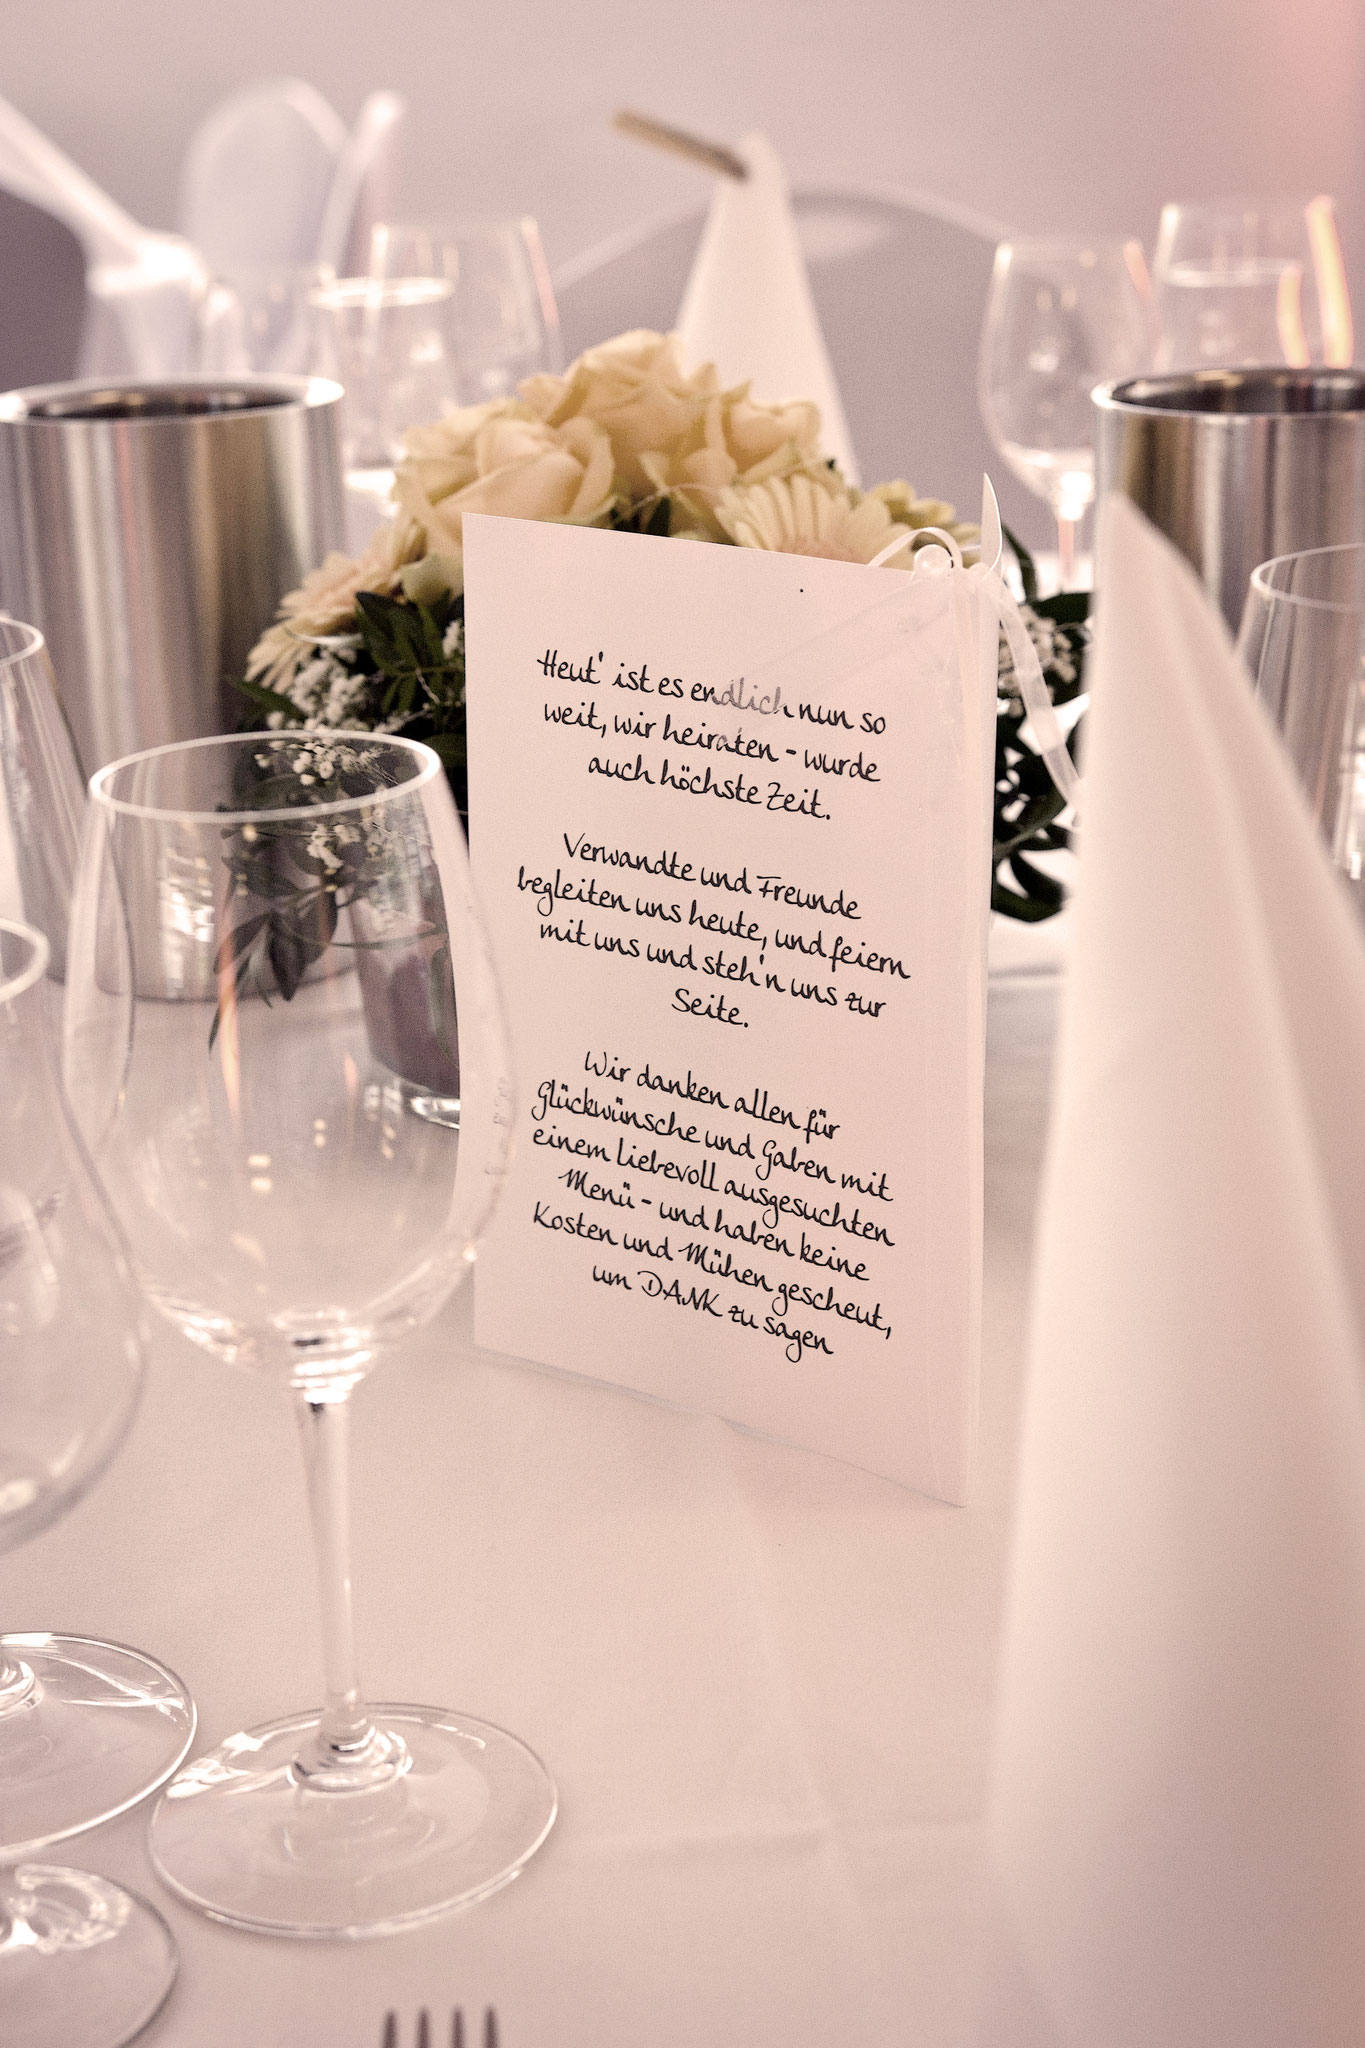 Heut' ist es endlich nun so
weit, wir heiraten - wurde
auch höchste Zeit.
Verwandte und Freunde
begleiten uns heute, und feiern
mit uns und steh'n uns zur
Seite.
Wir danken allen für
Glückwünsche und Gaben mit
einem liebevoll ausgesuchten
Menü - und haben keine
Kosten und Mühen gescheut,
um DANK zu sagen